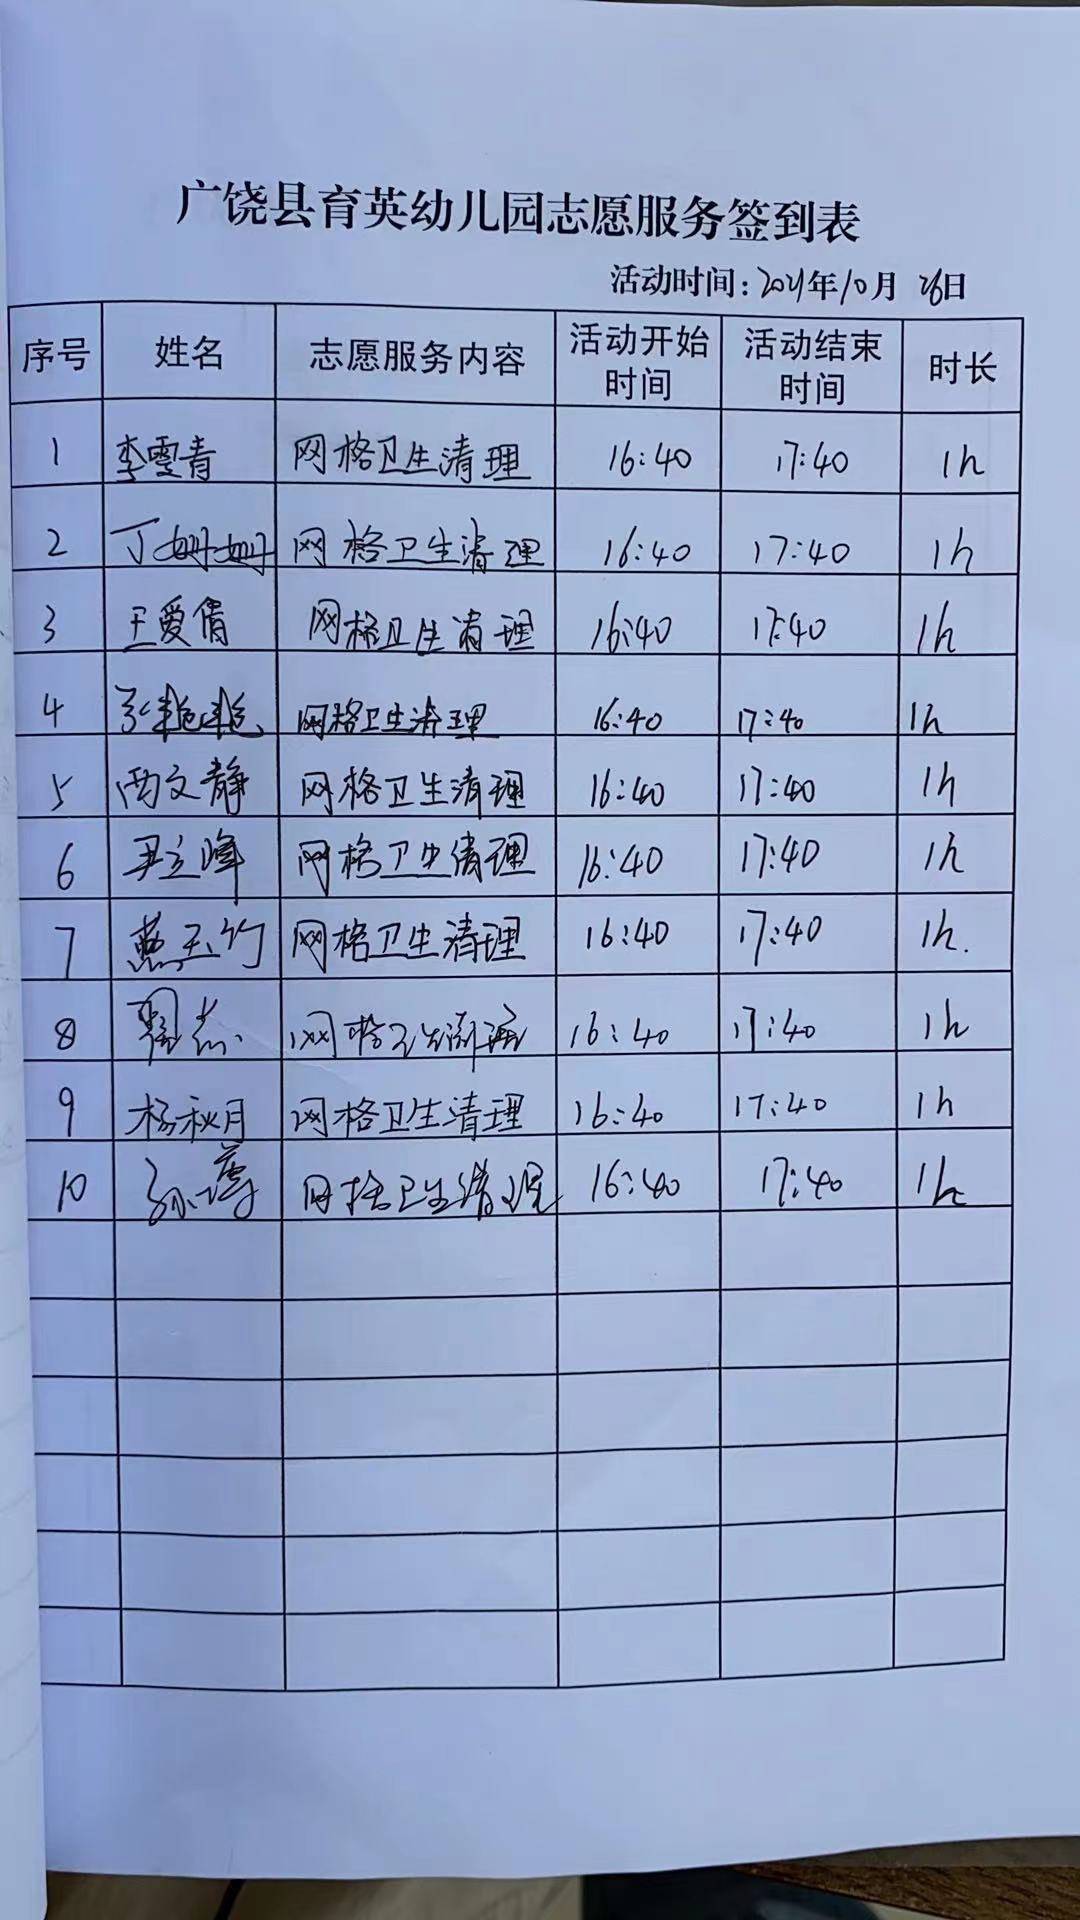 广饶县育英幼儿园志愿服务签到表
活动时间:2021年10月26日
序号 姓名 志愿服务内容 活动开始时间 活动结束时间 时长
1 李雪青 网格卫生清理 16:40 17:40 1h
2 丁姗姗 网格卫生清理 16:40 17:40 1h
3 王爱倩 网格卫生清理 16:40 17:40 1h
4 张艳艳 网格卫生清理 16:40 17:40 1h
5 文静 网格卫生清理 16:40 17:40 1h
6 尹立峰 网格卫生清理 16:40 17:40 1h
7 燕玉竹 网格卫生清理 16:40 17:40 1h.
8 网格卫生清理 16:40 17:40 1h
9 杨秋月 网格卫生清理 16:40 17:40 1h
10 孙 网格卫生清理 16:40 17:40 1h